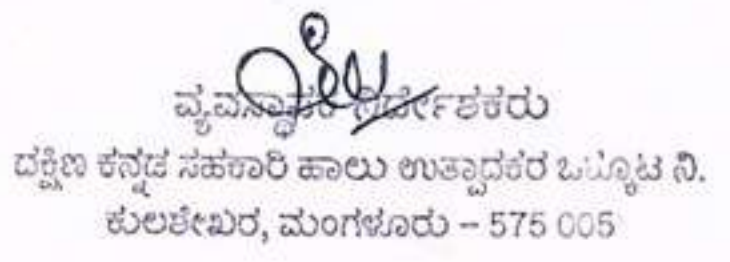 ವ್ಯವಸ್ಥಾಪಕ ನಿರ್ದೇಶಕರು
ದಕ್ಷಿಣ ಕನ್ನಡ ಸಹಕಾರಿ ಹಾಲು ಉತ್ಪಾದಕರ ಒಕ್ಕೂಟ ನಿ.
ಕುಲಶೇಖರ, ಮಂಗಳೂರು – 575 005